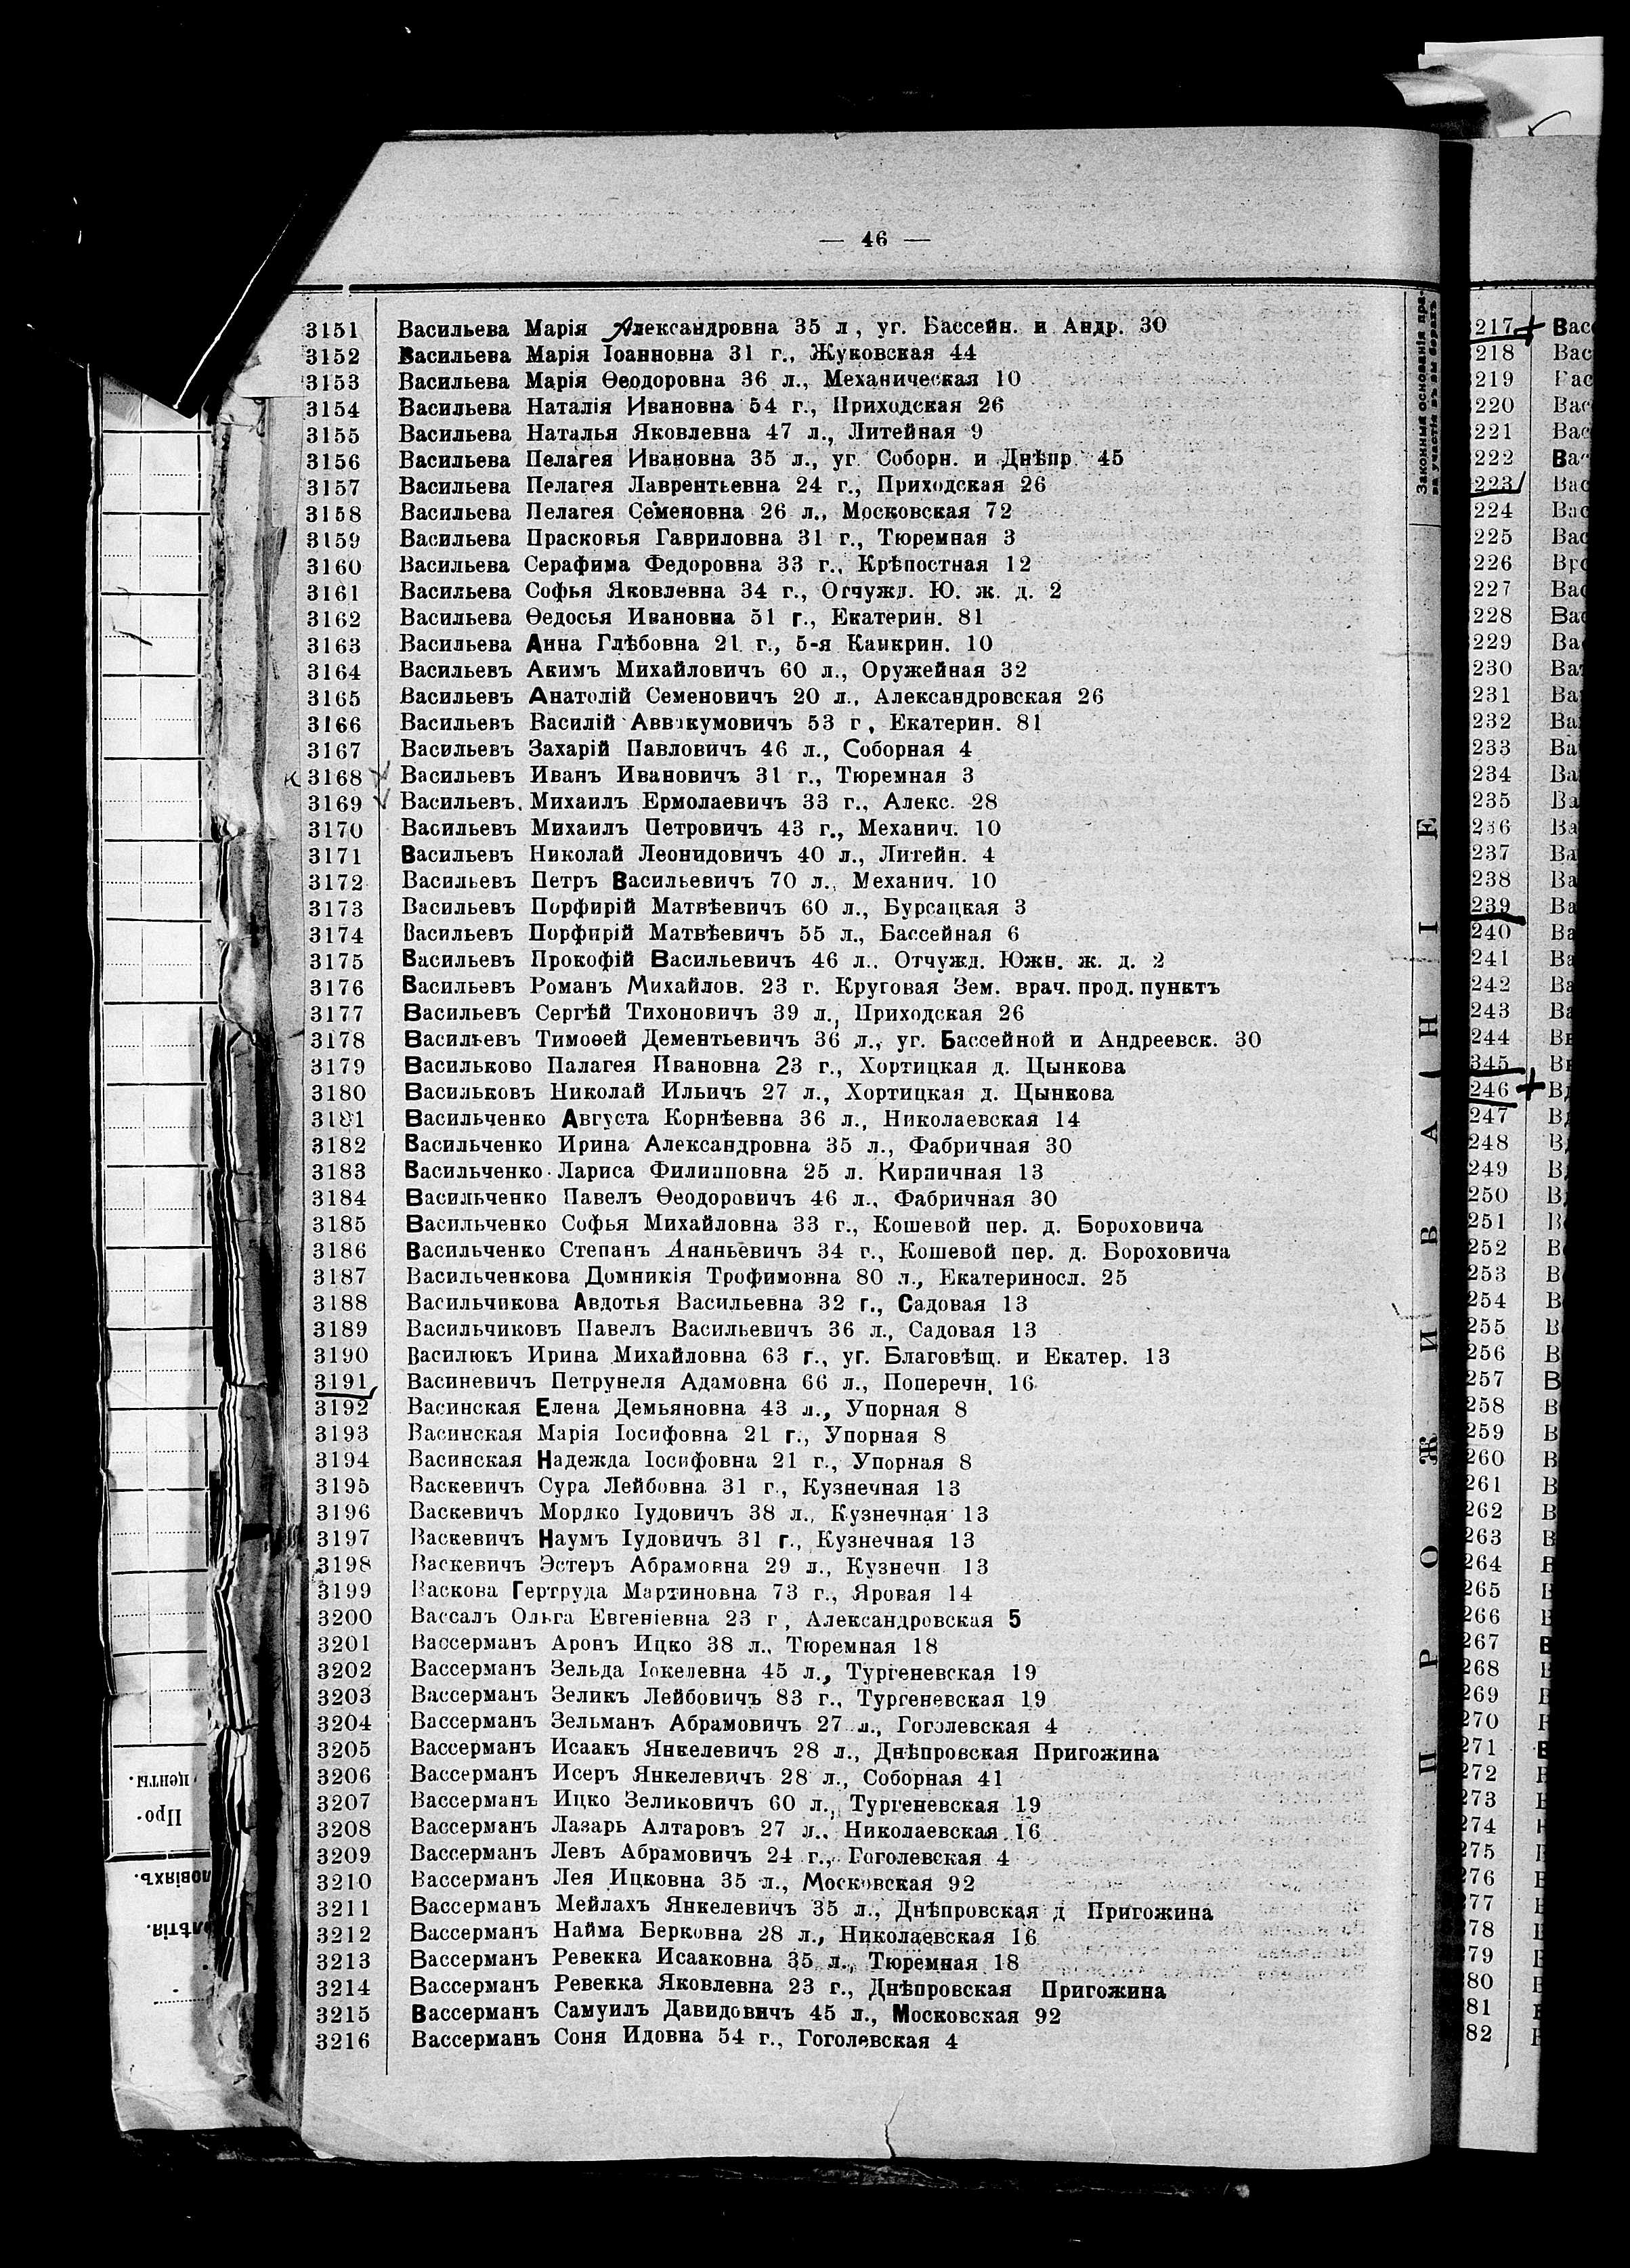 — 46 —
Законныя основанія пра-
ва участія въ выборахъ
3151 Васильева Марія Александровна 35 л., уг. Бассейн. и Андр. 30
3152 Васильева Марія Іоанновна 31 г., Жуковская 44
3153 Васильева Марія Ѳеодоровна 36 л., Механическая 10
3154 Васильева Наталія Ивановна 54 г., Приходская 26
3155 Васильева Наталья Яковлевна 47 л., Литейная 9
3156 Васильева Пелагея Ивановна 35 л., уг. Соборн. и Днѣпр. 45
3157 Васильева Пелагея Лаврентьевна 24 г., Приходская 26
3158 Васильева Пелагея Семеновна 26 л., Московская 72
3159 Васильева Прасковья Гавриловна 31 г., Тюремная 3
3160 Васильева Серафима Федоровна 33 г., Крѣпостная 12
3161 Васильева Софья Яковлевна 34 г., Отчужд. Ю. ж. д. 2
3162 Васильева Ѳедосья Ивановна 51 г., Екатерин. 81
3163 Васильева Анна Глѣбовна 21 г., 5-я Канкрин. 10
3164 Васильевъ Акимъ Михайловичъ 60 л., Оружейная 32
3165 Васильевъ Анатолій Семеновичъ 20 л., Александровская 26
3166 Васильевъ Василій Аввакумовичъ 53 г., Екатерин. 81
3167 Васильевъ Захарій Павловичъ 46 л., Соборная 4
3168 Васильевъ Иванъ Ивановичъ 31 г., Тюремная 3
3169 Васильевъ Михаилъ Ермолаевичъ 33 г., Алекс. 28
3170 Васильевъ Михаилъ Петровичъ 43 г., Механич. 10
3171 Васильевъ Николай Леонидовичъ 40 л., Литейн. 4
3172 Васильевъ Петръ Васильевичъ 70 л., Механич. 10
3173 Васильевъ Порфирій Матвѣевичъ 60 л., Бурсацкая 3
3174 Васильевъ Порфирій Матвѣевичъ 55 л., Бассейная 6
3175 Васильевъ Прокофій Васильевичъ 46 л., Отчужд. Южн. ж. д. 2
3176 Васильевъ Романъ Михайлов. 23 г. Круговая Зем. врач. прод. пунктъ
3177 Васильевъ Сергѣй Тихоновичъ 39 л., Приходская 26
3178 Васильевъ Тимоѳей Дементьевичъ 36 л., уг. Бассейной и Андреевск. 30
3179 Васильково Палагея Ивановна 23 г., Хортицкая д. Цынкова
3180 Васильковъ Николай Ильичъ 27 л., Хортицкая д. Цынкова
3181 Васильченко Августа Корнѣевна 36 л., Николаевская 14
3182 Васильченко Ирина Александровна 35 л., Фабричная 30
3183 Васильченко Лариса Филипповна 25 л. Кирпичная 13
3184 Васильченко Павелъ Ѳеодоровичъ 46 л., Фабричная 30
3185 Васильченко Софья Михайловна 33 г., Кошевой пер. д. Бороховича
3186 Васильченко Степанъ Ананьевичъ 34 г., Кошевой пер. д. Бороховича
3187 Васильченкова Домникія Трофимовна 80 л., Екатериносл. 25
3188 Васильчикова Авдотья Васильевна 32 г., Садовая 13
3189 Васильчиковъ Павелъ Васильевичъ 36 л., Садовая 13
3190 Василюкъ Ирина Михайловна 63 г., уг. Благовѣщ. и Екатер. 13
3191 Васиневичъ Петрунеля Адамовна 66 л., Поперечн. 16
3192 Васинская Елена Демьяновна 43 л., Упорная 8
3193 Васинская Марія Іосифовна 21 г., Упорная 8
3194 Васинская Надежда Іосифовна 21 г., Упорная 8
3195 Васкевичъ Сура Лейбовна 31 г., Кузнечная 13
3196 Васкевичъ Мордко Іудовичъ 38 л., Кузнечная 13
3197 Васкевичъ Наумъ Іудовичъ 31 г., Кузнечная 13
3198 Васкевичъ Эстеръ Абрамовна 29 л., Кузнечн 13
3199 Васкова Гертруда Мартиновна 73 г., Яровая 14
3200 Вассалъ Ольга Евгеніевна 23 г., Александровская 5
3201 Вассерманъ Аронъ Ицко 38 л., Тюремная 18
3202 Вассерманъ Зельда Іокелевна 45 л., Тургеневская 19
3203 Вассерманъ Зеликъ Лейбовичъ 83 г., Тургеневская 19
3204 Вассерманъ Зельманъ Абрамовичъ 27 л., Гоголевская 4
3205 Вассерманъ Исаакъ Янкелевичъ 28 л., Днѣпровская Пригожина
3206 Вассерманъ Исеръ Янкелевичъ 28 л., Соборная 41
3207 Вассерманъ Ицко Зеликовичъ 60 л., Тургеневская 19
3208 Вассерманъ Лазарь Алтаровъ 27 л., Николаевская 16
3209 Вассерманъ Левъ Абрамовичъ 24 г., Гоголевская 4
3210 Вассерманъ Лея Ицковна 35 л., Московская 92
3211 Вассерманъ Мейлахъ Янкелевичъ 35 л., Днѣпровская д Пригожина
3212 Вассерманъ Найма Берковна 28 л., Николаевская 16
3213 Вассерманъ Ревекка Исааковна 35 л., Тюремная 18
3214 Вассерманъ Ревекка Яковлевна 23 г., Днѣпровская Пригожина
3215 Вассерманъ Самуилъ Давидовичъ 45 л., Московская 92
3216 Вассерманъ Соня Идовна 54 г., Гоголевская 4
ПРОЖИВАНІЕ
Про-
центы.